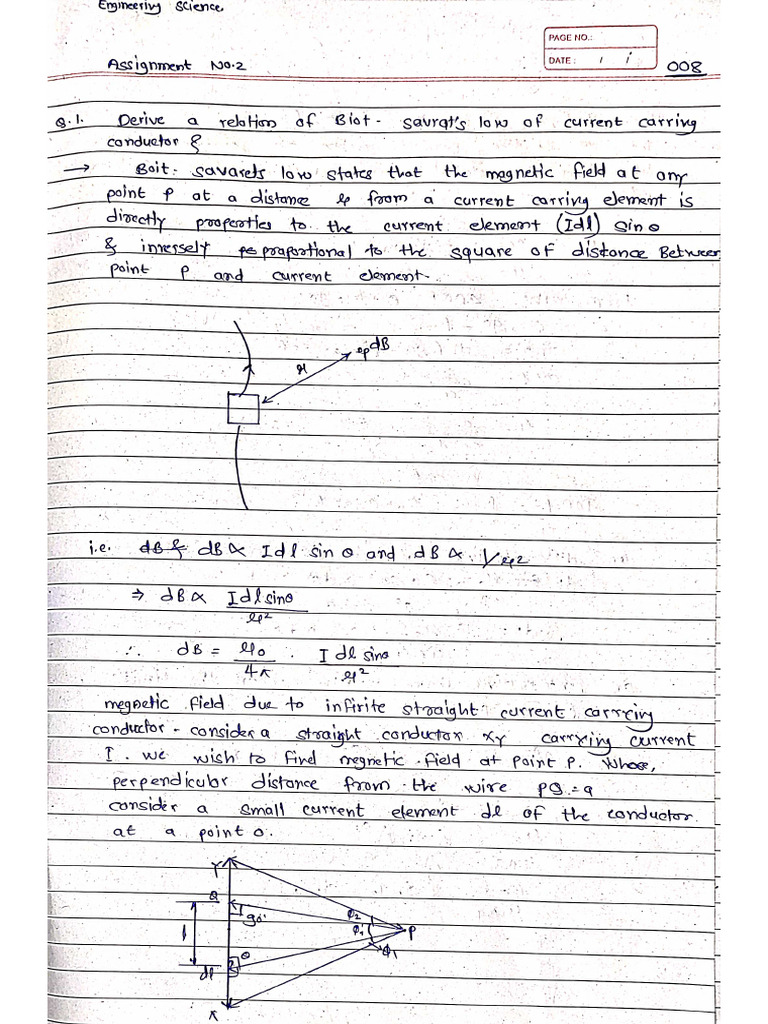 Engineering Science
PAGE NO.:
DATE : / /
Assignment No.2
008
Q.1. Derive a relation of Biot - savrat's low of current carring
conductor &
→ Boit - savarets low states that the megnetic field at any
point p at a distance r from a current carring element is
directly properties to the current element (Idl) sin θ
& inversely proprational to the square of distance Between
point p and current element.
r dB
i.e. dB ∝ Idl sin θ and dB ∝ 1/r²
⇒ dB ∝ Idlsinθ
r²
∴ dB = μ0 . Idl sinθ
4π r²
megnetic field due to infirite straight current carrying
conductor - consider a straight conductor xy carrying current
I. we wish to find megnetic field at point P. Whose,
perpendicular distance from the wire PQ = a
consider a small current element dl of the conductor
at a point o.
Y
Q
90°
φ2
φ
P
φ1
l
θ
dl
X